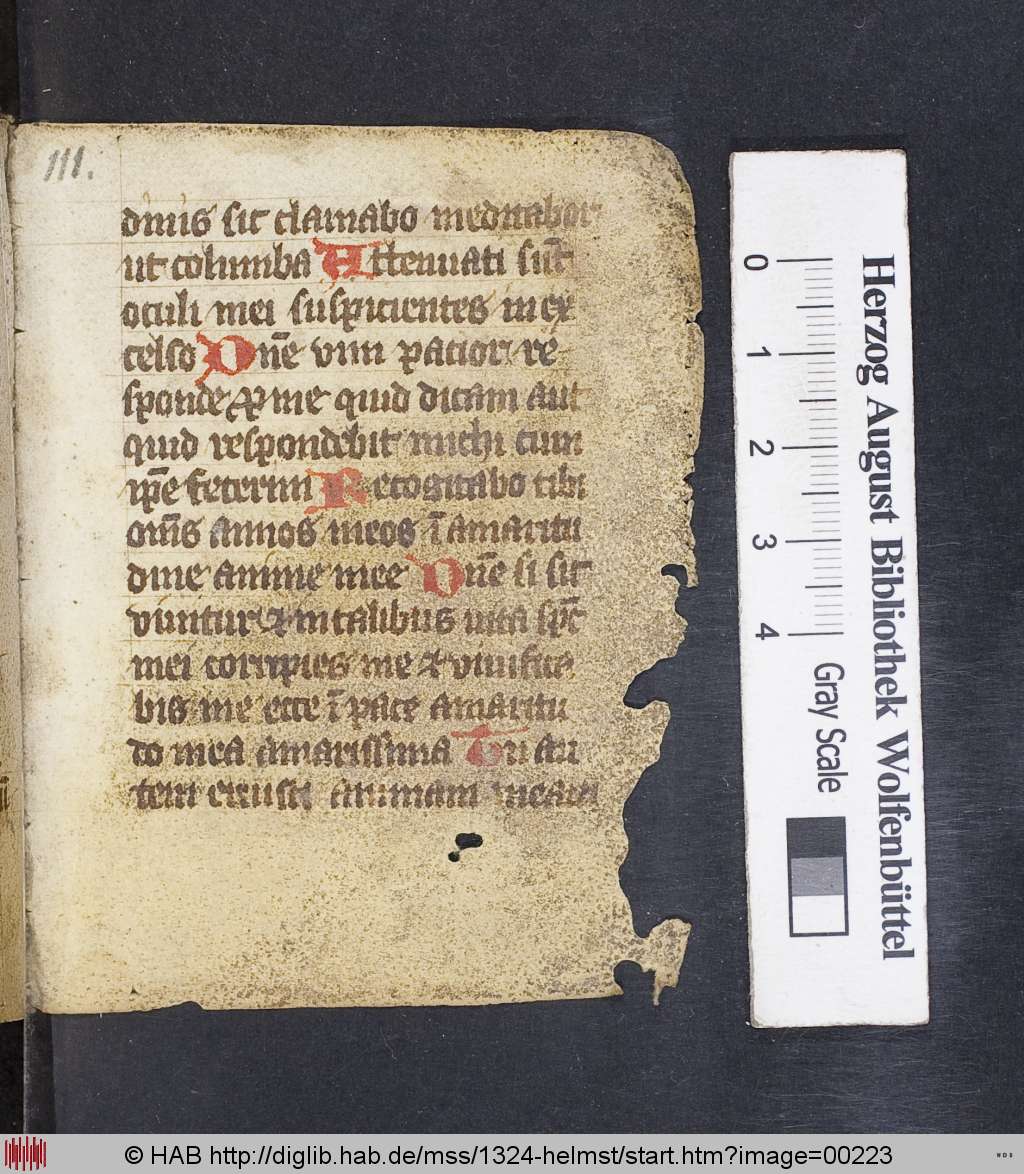 111.
dinis sic clamabo meditabor
ut columba Attenuati sūt
oculi mei suspicientes in ex
celso Dñe vim patior re
sponde ꝓ me quid dicam aut
quid respondebit michi cum
ip̄e fecerim Recogitabo tibi
om̄s annos meos ī amaritu
dine anime mee Dñe si sic
vivitur & in talibus vita sp̄c
mei corripies me & vivifica
bis me ecce ī pace amaritu
do mea amarissima Tu au
tem eruisti animam meam
Herzog August Bibliothek Wolfenbüttel
0 1 2 3 4
Gray Scale
© HAB http://diglib.hab.de/mss/1324-helmst/start.htm?image=00223